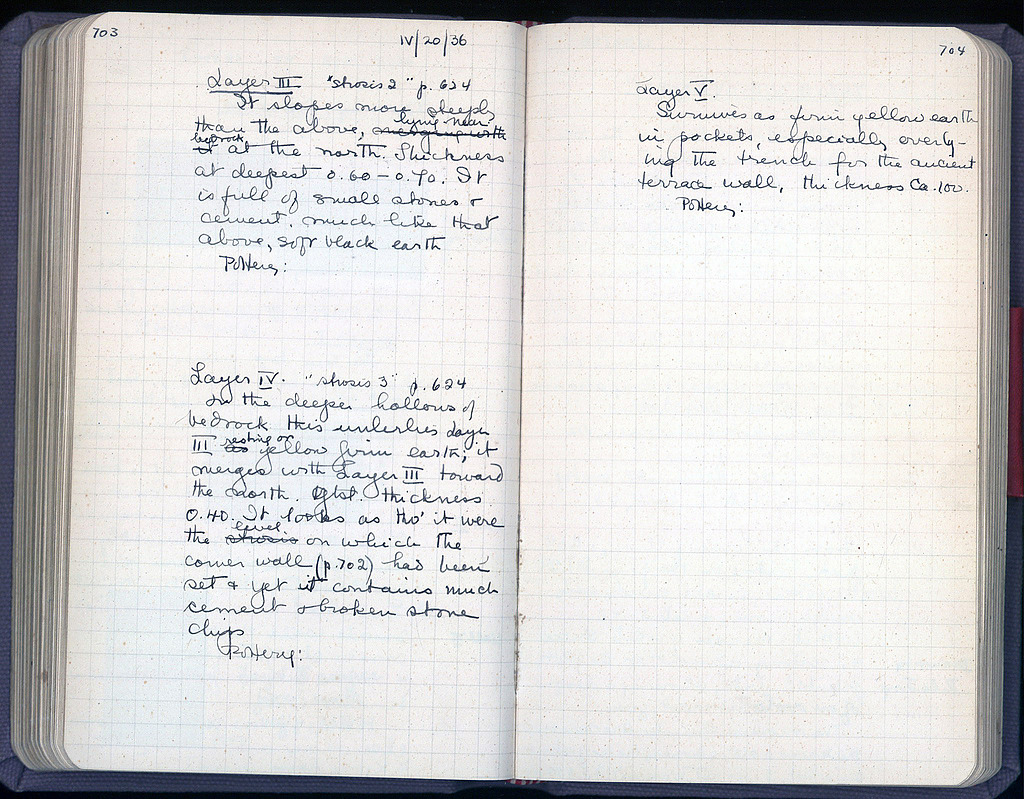 703
IV/20/36
Layer III "strosis 2" p. 624
It slopes more steeply
than the above, merging with lying near
it bedrock at the north. Thickness
at deepest 0.60 - 0.70. It
is full of small stones &
cement, much like that
above, soft black earth
Pottery:
Layer IV. "strosis 3" p. 624
In the deeper hollows of
bedrock this underlies Layer
III as resting on yellow firm earth; it
merges with Layer III toward
the north. Gtst. thickness
0.40. It looks as tho' it were
the strosis level on which the
corner wall (p. 702) had been
set & yet it contains much
cement & broken stone
chips
Pottery:
704
Layer V.
Survives as firm yellow earth
in pockets, especially overly-
ing the trench for the ancient
terrace wall, thickness Ca. 100.
Pottery: